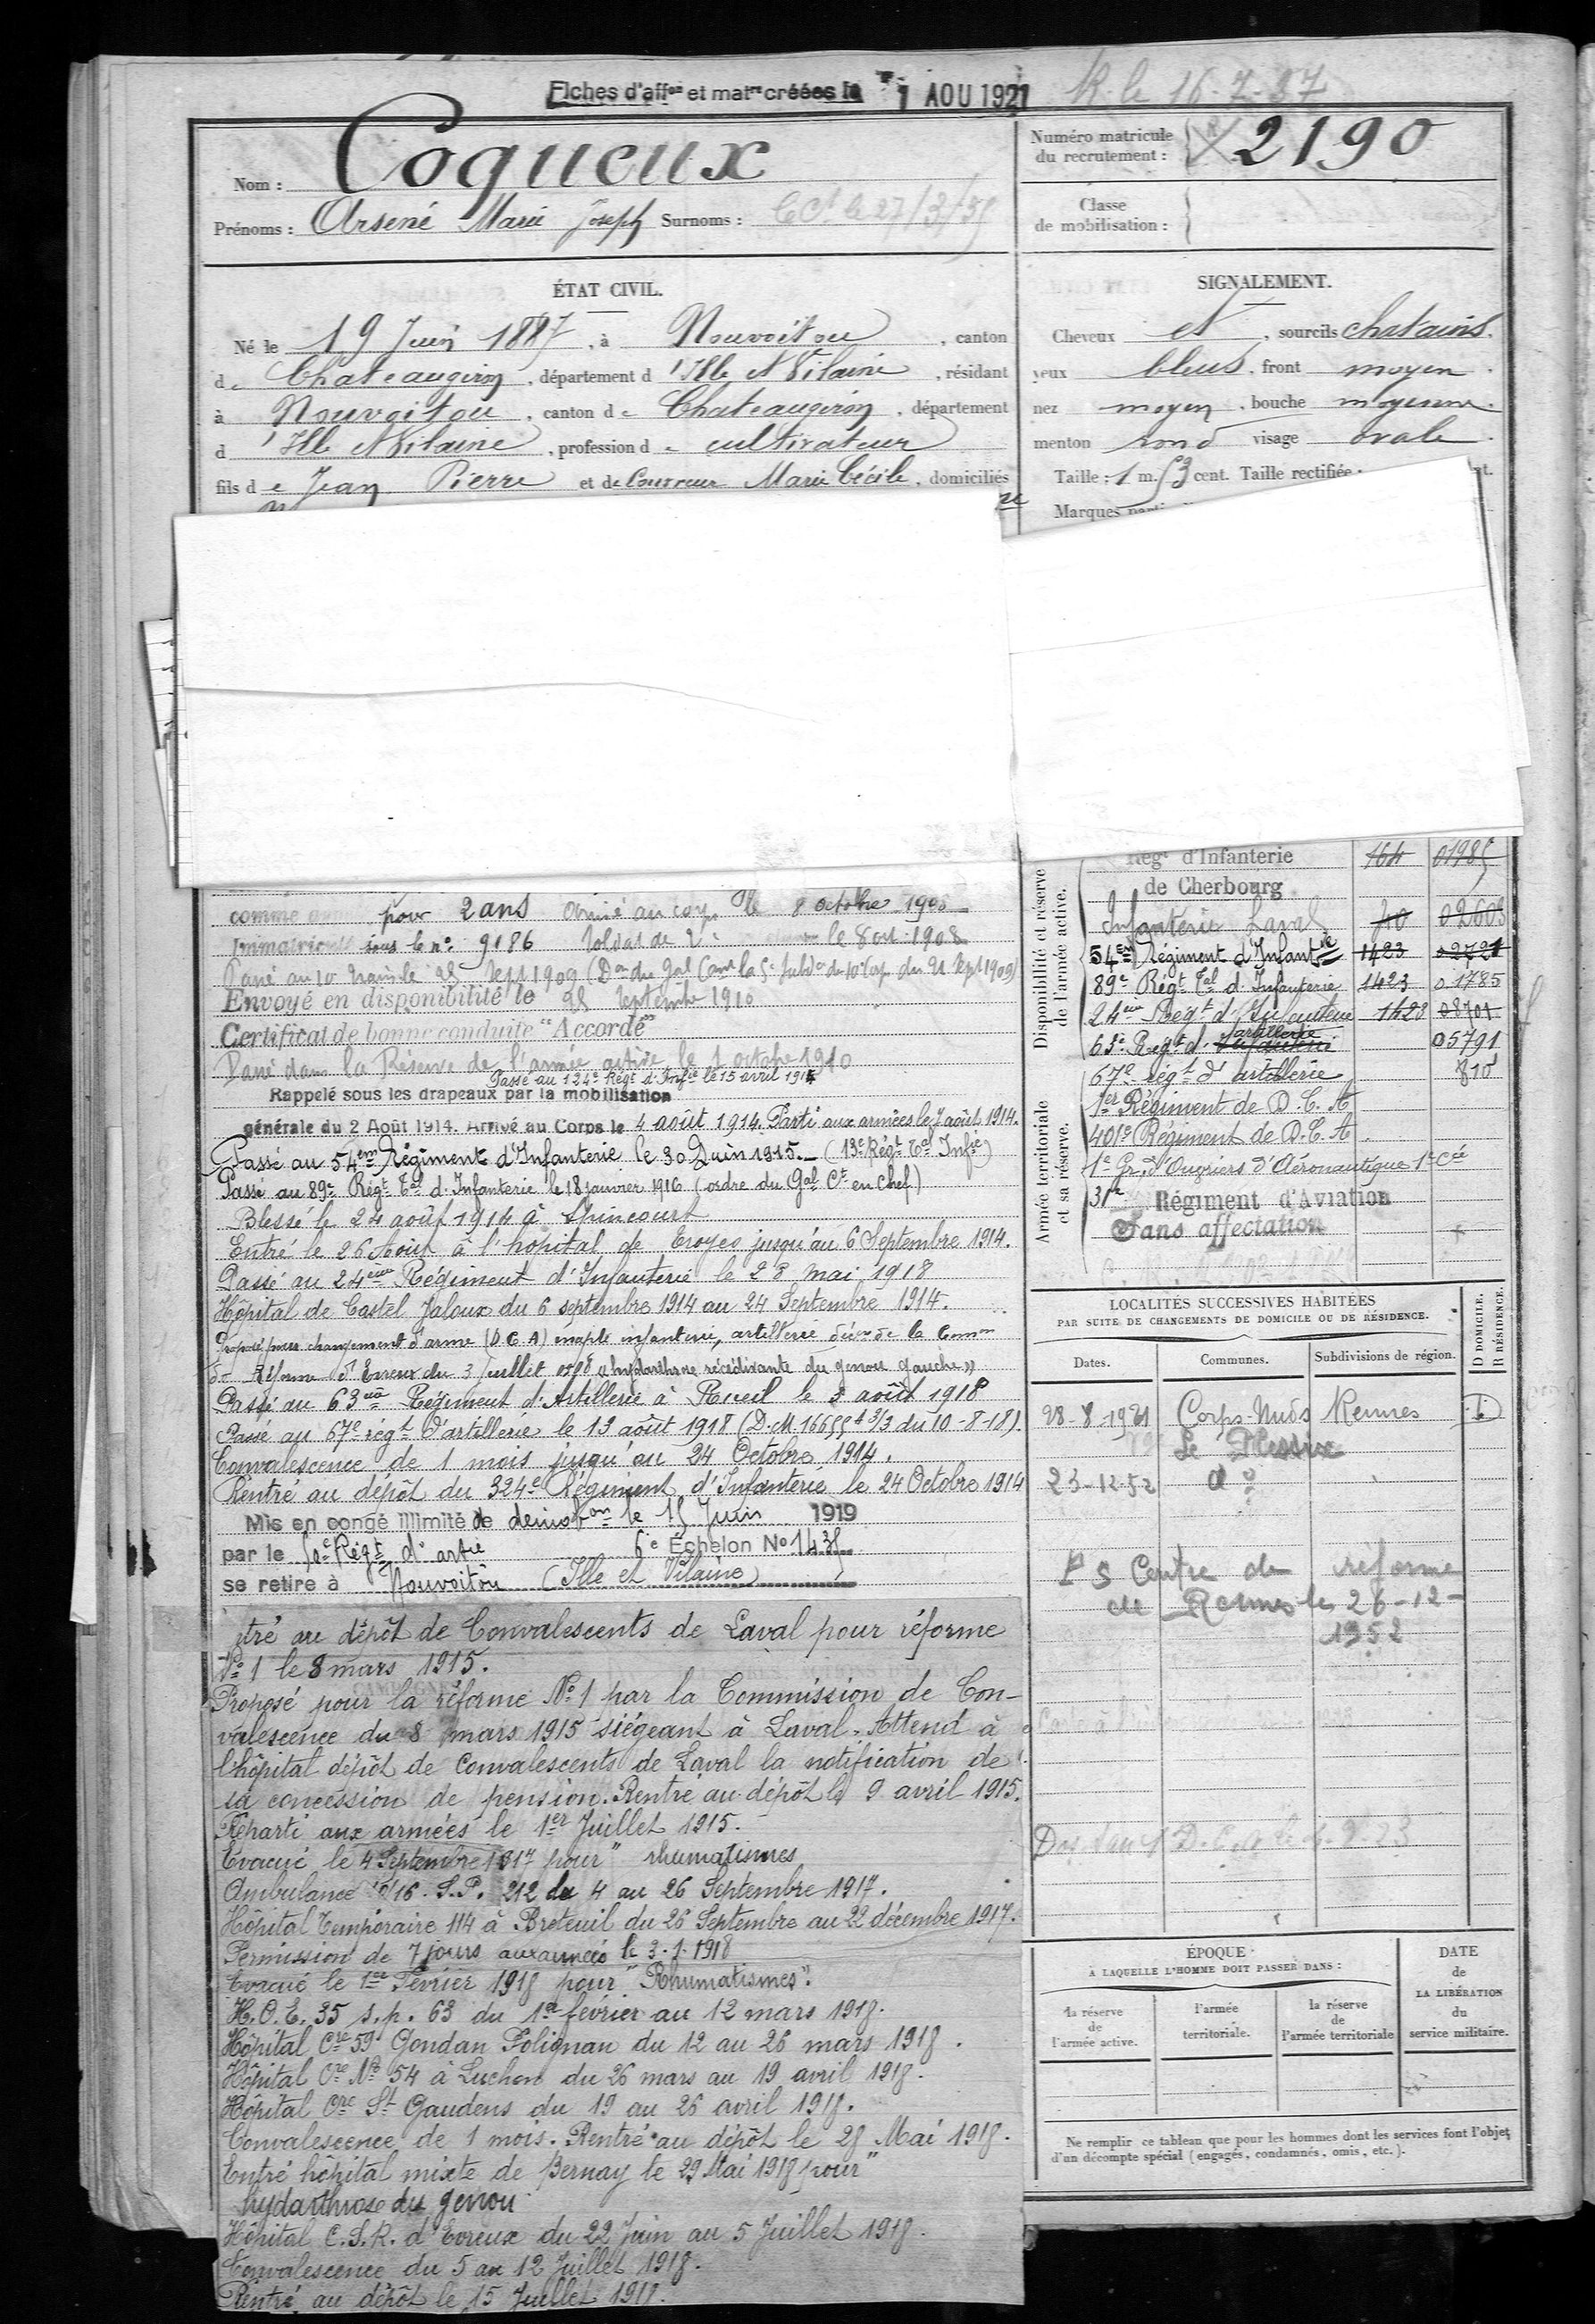 Fiches d'aff.on et mat.re créées le 1 AOU 1921
R. le 16-7-37
Nom : Coqueux
Prénoms : Arsené Marie Joseph Surnoms :
Numéro matricule du recrutement : 2190
Classe de mobilisation :
ÉTAT CIVIL.
Né le 19 Juin 1887, à Nouvoitou, canton
de Chateaugiron, département d'Ille et Vilaine, résidant
à Nouvoitou, canton de Chateaugiron, département
d'Ille et Vilaine, profession de cultivateur
fils de Jean Pierre et de Couvreur Marie Cécile, domiciliés
SIGNALEMENT.
Cheveux et, sourcils chatains.
yeux bleus, front moyen.
nez moyen, bouche moyenne.
menton rond visage ovale.
Taille : 1 m. 53 cent. Taille rectifiée :
Marques
pour 2 ans arrivé au corps le 8 octobre 1908
immatriculé sous le n° 9186 soldat de 2e le 8 oct. 1908
Envoyé en disponibilité le 25 septembre 1910
Certificat de bonne conduite "Accordé"
Passé dans la Réserve de l'armée active le 1 octobre 1910
Passé au 124e Régt d'Infie le 15 avril 1914
Rappelé sous les drapeaux par la mobilisation
générale du 2 Août 1914. Arrivé au Corps le 4 août 1914. Parti aux armées le 7 août 1914.
Passé au 54em Régiment d'Infanterie le 30 Juin 1915. _ (13e Régt Tal Infie)
Passé au 89e Régt Tal d'Infanterie le 18 janvier 1916 (ordre du Gal Ct en Chef)
Blessé le 24 août 1914 à Spincourt
Entré le 26 Août à l'hopital de Troyes jusqu'au 6 Septembre 1914.
Passé au 24ème Régiment d'Infanterie le 28 mai 1918
Hôpital de Castel Jaloux du 6 septembre 1914 au 24 Septembre 1914.
Proposé pour changement d'arme (D.C.A) inapte infanterie, artillerie décon de la Comon
de Réforme d'Evreux du 3 juillet 1918 "hydarthrose récidivante du genou gauche"
Passé au 63me Régiment d'Artillerie à Rueil le 3 août 1918
Passé au 67e régt d'artillerie le 13 août 1918 (D.M. 16655 3/3 du 10-8-18).
Convalescence de 1 mois jusqu'au 24 Octobre 1914.
Rentré au dépôt du 324e Régiment d'Infanterie le 24 Octobre 1914
Mis en congé illimité de démobon le 15 Juin 1919
par le Régt d'artie 6e Échelon No 1435
se retire à Nouvoitou (Ille et Vilaine)
tré au dépôt de Convalescents de Laval pour réforme
No 1 le 8 mars 1915.
Proposé pour la réforme No 1 par la Commission de Con-
valescence du 8 mars 1915 siégeant à Laval. Attend à
l'hôpital dépôt de Convalescents de Laval la notification de
sa concession de pension. Rentré au dépôt le 9 avril 1915.
Réparti aux armées le 1er Juillet 1915.
Evacué le 4 Septembre 1917 pour "rhumatismes
Ambulance 16. S.P. 212 du 4 au 26 Septembre 1917.
Hôpital Temporaire 114 à Breteuil du 26 Septembre au 22 décembre 1917.
Permission de 7 jours aux armées le 3.1.1918
Evacué le 1er Février 1918 pour "Rhumatismes".
H.O.E. 35 s.p. 63 du 1er février au 12 mars 1918.
Hôpital Cre 59 Gondan Polignan du 12 au 26 mars 1918.
Hôpital Cre No 54 à Luchon du 26 mars au 19 avril 1918.
Hôpital Cre St Gaudens du 19 au 26 avril 1918.
Convalescence de 1 mois. Rentré au dépôt le 28 Mai 1918.
Entré hôpital mixte de Bernay le 29 Mai 1918 pour "
hydarthrose du genou
Hôpital C.S.R. d'Evreux du 22 Juin au 5 Juillet 1918.
Convalescence du 5 au 12 Juillet 1918.
Rentré au dépôt le 15 Juillet 1918.
Disponibilité et réserve de l'armée active.
Régt d'Infanterie 164 01985
de Cherbourg
Infanterie Laval 70 02603
54em Régiment d'Infantie 1423 02721
89e Régt Tal d'Infanterie 1423 01785
24eme Régt d'Infanterie 1428 08701
Armée territoriale et sa réserve.
63e Régt d' Infanterie artillerie 05791
67e régt d'artillerie 810
1er Régiment de D.C.A
401e Régiment de D.C.A.
1e Gr. d'Ouvriers d'Aéronautique 1e Cie
31e Régiment d'Aviation
Sans affectation
LOCALITÉS SUCCESSIVES HABITÉES
PAR SUITE DE CHANGEMENTS DE DOMICILE OU DE RÉSIDENCE.
D DOMICILE. R RÉSIDENCE.
Dates. Communes. Subdivisions de région.
28-8-1921 Corps-Nuds Rennes
Le Plessix
23-12-52 do
P S Centre de réforme
de Rennes le 26-12-
1952
ÉPOQUE
À LAQUELLE L'HOMME DOIT PASSER DANS :
la réserve de l'armée active.
l'armée territoriale.
la réserve de l'armée territoriale
DATE de LA LIBÉRATION du service militaire.
Ne remplir ce tableau que pour les hommes dont les services font l'objet
d'un décompte spécial (engagés, condamnés, omis, etc.).